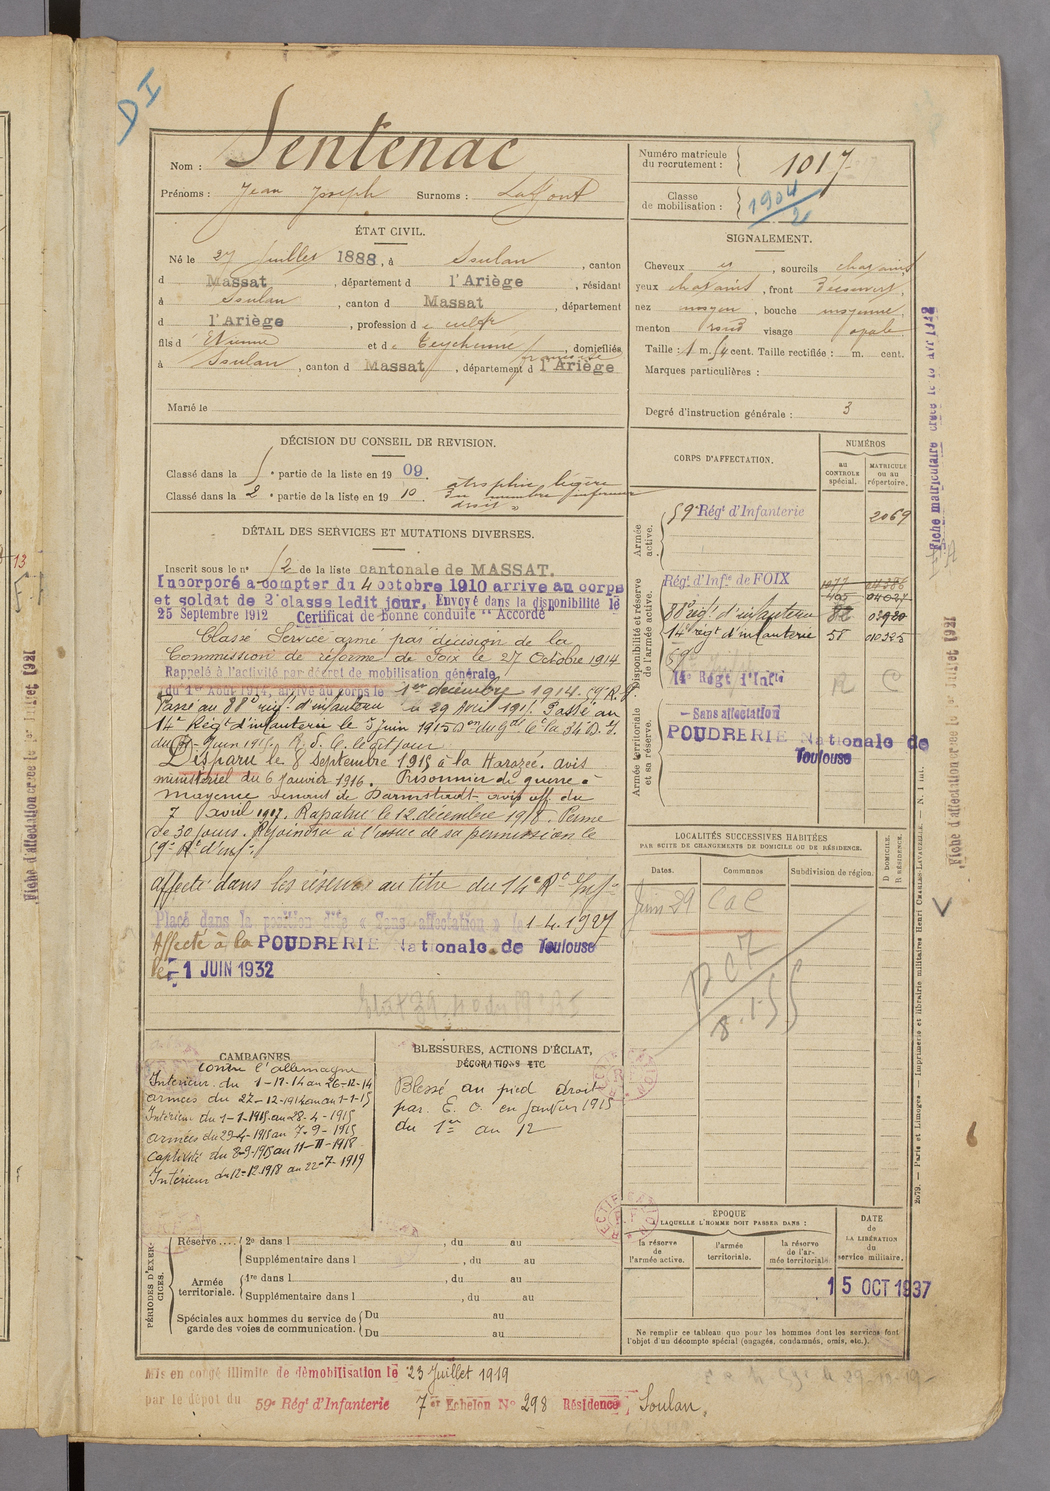 DI
Nom : Sentenac
Prénoms : Jean Joseph Surnoms : Lafont
Numéro matricule du recrutement : 1017
Classe de mobilisation : 1904/2
ÉTAT CIVIL.
Né le 27 Juillet 1888, à Soulan, canton
d Massat, département d l'Ariège, résidant
à Soulan, canton d Massat, département
d l'Ariège, profession de cultr
fils d Etienne et de Teychenne françoise, domiciliés
à Soulan, canton d Massat, département d l'Ariège
Marié le
SIGNALEMENT.
Cheveux et, sourcils chatains
yeux chatains, front découvert,
nez moyen, bouche moyenne,
menton rond visage ovale
Taille : 1 m. 54 cent. Taille rectifiée : m. cent.
Marques particulières :
Degré d'instruction générale : 3
DÉCISION DU CONSEIL DE REVISION.
Classé dans la 5e partie de la liste en 1909.
Classé dans la 2e partie de la liste en 1910. atrophie légère
du membre inférieur
droit "
DÉTAIL DES SERVICES ET MUTATIONS DIVERSES.
Inscrit sous le n° 12 de la liste cantonale de MASSAT.
Incorporé à compter du 4 octobre 1910 arrivé au corps
et soldat de 2e classe ledit jour. Envoyé dans la disponibilité le
25 Septembre 1912 Certificat de bonne conduite "Accordé
Classé Service armé par décision de la
Commission de réforme de Foix le 27 Octobre 1914
Rappelé à l'activité par décret de mobilisation générale
du 1er Août 1914, arrivé au corps le 1er décembre 1914. 59e R.I.
Passé au 88e rég. d'infanterie le 29 Avril 1915. Passé au
14e Régt d'infanterie le 5 Juin 1915
Disparu le 8 Septembre 1915 à la Harazée. avis
ministériel du 6 Janvier 1916. Prisonnier de guerre à
Mayence venant de Darmstadt avis off. du
7 avril 1917. Rapatrié le 12 décembre 1918. Perme
de 30 jours. Rejoindra à l'issue de sa permission le
59e Rt d'inf.
Affecté dans les réserves au titre du 14e Rt Inf.
Placé dans la position dite « Sans affectation » le 1-4-1927
Affecté à la POUDRERIE Nationale de Toulouse
le 1 JUIN 1932
CORPS D'AFFECTATION.
NUMÉROS
au CONTROLE spécial.
MATRICULE ou au répertoire.
Armée active.
59e Régt d'Infanterie 2069
Disponibilité et réserve de l'armée active.
Régt d'Infie de FOIX 1077 04386
465 04037
88e régt d'infanterie 82 03920
14e régt d'infanterie 58 01325
59e
14e Régt d'Infie R C
Armée territoriale et sa réserve.
- Sans affectation
POUDRERIE Nationale de
Toulouse
LOCALITÉS SUCCESSIVES HABITÉES
PAR SUITE DE CHANGEMENTS DE DOMICILE OU DE RÉSIDENCE.
Dates. Communes Subdivision de région. D. DOMICILE. R. RÉSIDENCE.
Juin 29 CaC
8.1.55
CAMPAGNES
contre l'allemagne
Intérieur du 1-12-14 au 26-12-14
armées du 27-12-1914 au 1-1-15
Intérieur du 1-1-1915 au 28-4-1915
armées du 29-4-1915 au 7-9-1915
Captivité du 8-9-1915 au 11-11-1918
Intérieur du 12-12-1918 au 22-7-1919
BLESSURES, ACTIONS D'ÉCLAT,
DÉCORATIONS ETC
Blessé au pied droit
par E. O. en Janvier 1915
du 1er au 12
PÉRIODES D'EXERCICES.
Réserve .... 2e dans l , du au
Supplémentaire dans l , du au
Armée territoriale. 1re dans l , du au
Supplémentaire dans l , du au
Spéciales aux hommes du service de garde des voies de communication. Du au
Du au
ÉPOQUE
A LAQUELLE L'HOMME DOIT PASSER DANS :
la réserve de l'armée active.
l'armée territoriale.
la réserve de l'armée territoriale
DATE de LA LIBÉRATION du service militaire.
15 OCT 1937
Ne remplir ce tableau que pour les hommes dont les services font
l'objet d'un décompte spécial (engagés, condamnés, omis, etc.).
Mis en congé illimité de démobilisation le 23 Juillet 1919
par le dépôt du 59e Régt d'Infanterie 7er Echelon No 298 Résidence, Soulan.
2079. — Paris et Limoges — Imprimerie et librairie militaires Henri CHARLES-LAVAUZELLE.
Fiche d'affectation créée le 1er Juillet 1921
Fiche d'affectation créée le 1er Juillet 1921
6
13